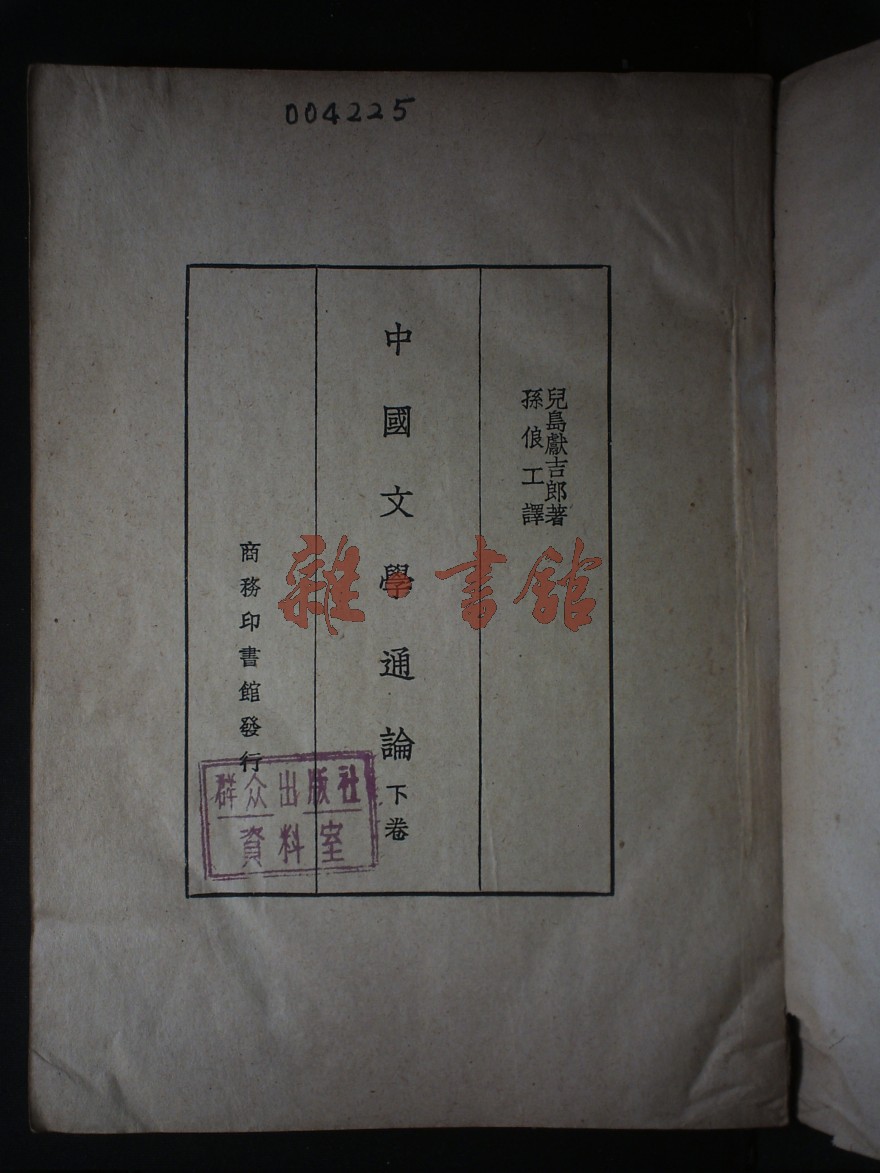 004225
兒島獻吉郎著
孫俍工譯
中國文學通論下卷
商務印書館發行
雜書館
群众出版社
資料室